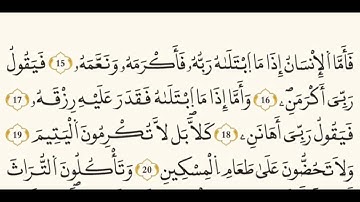 فَأَمَّا اَ۬لْإِنسَٰنُ إِذَا مَا اَ۪بْتَلَىٰهُ رَبُّهُۥ فَأَكْرَمَهُۥ وَنَعَّمَهُۥ 15 فَيَقُولُ
رَبِّيَ أَكْرَمَنِۦ 16 وَأَمَّا إِذَا مَا اَ۪بْتَلَىٰهُ فَقَدَرَ عَلَيْهِ رِزْقَهُۥ 17
فَيَقُولُ رَبِّيَ أَهَٰنَنِۦ 18 كَلَّا بَل لَّا تُكْرِمُونَ اَ۬لْيَتِيمَ 19
وَلَا تَحُضُّونَ عَلَىٰ طَعَامِ اِ۬لْمِسْكِينِ 20 وَتَأْكُلُونَ اَ۬لتُّرَاثَ